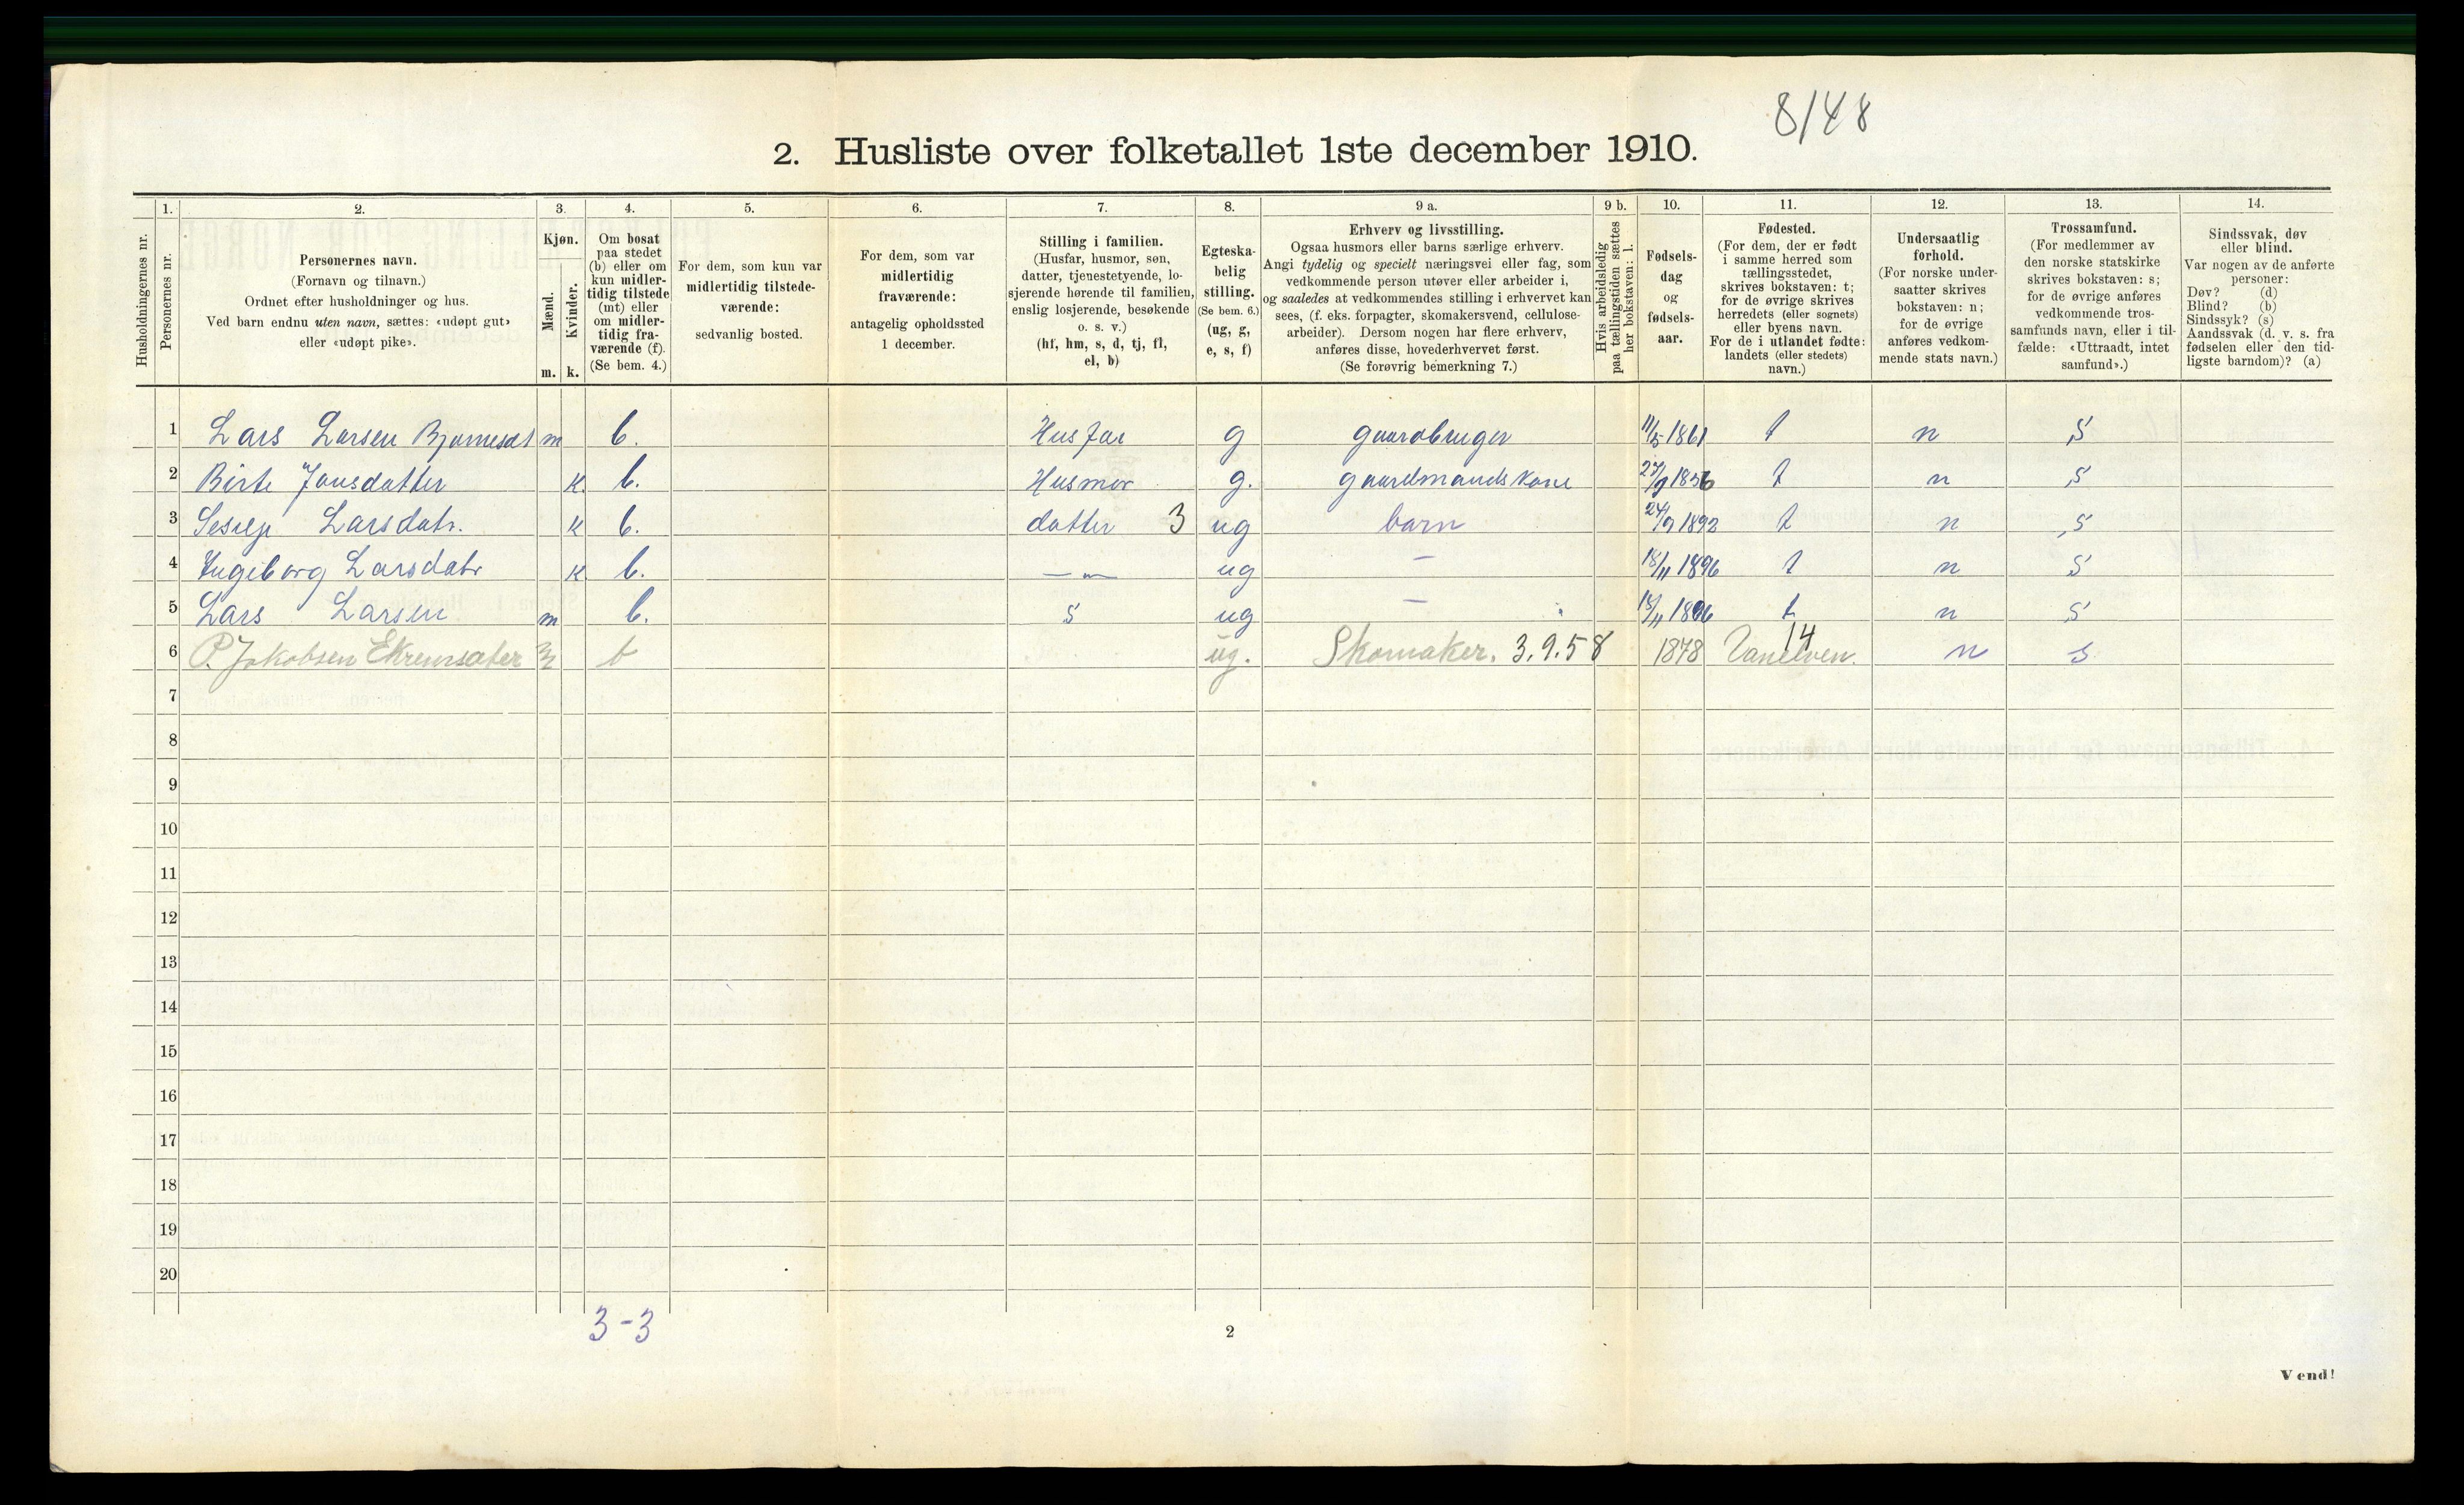 8/48
2. Husliste over folketallet 1ste december 1910.
Husholdningernes nr.
1. Personernes nr.
2. Personernes navn.
(Fornavn og tilnavn.)
Ordnet efter husholdninger og hus.
Ved barn endnu uten navn, sættes: «udøpt gut»
eller «udøpt pike».
3. Kjøn.
Mænd. m.
Kvinder. k.
4. Om bosat
paa stedet
(b) eller om
kun midler-
tidig tilstede
(mt) eller
om midler-
tidig fra-
værende (f).
(Se bem. 4.)
5. For dem, som kun var
midlertidig tilstede-
værende:
sedvanlig bosted.
6. For dem, som var
midlertidig
fraværende:
antagelig opholdssted
1 december.
7. Stilling i familien.
(Husfar, husmor, søn,
datter, tjenestetyende, lo-
sjerende hørende til familien,
enslig losjerende, besøkende
o. s. v.)
(hf, hm, s, d, tj, fl,
el, b)
8. Egteska-
belig
stilling.
(Se bem. 6.)
(ug, g,
e, s, f)
9 a. Erhverv og livsstilling.
Ogsaa husmors eller barns særlige erhverv.
Angi tydelig og specielt næringsvei eller fag, som
vedkommende person utøver eller arbeider i,
og saaledes at vedkommendes stilling i erhvervet kan
sees, (f. eks. forpagter, skomakersvend, cellulose-
arbeider). Dersom nogen har flere erhverv,
anføres disse, hovederhvervet først.
(Se forøvrig bemerkning 7.)
9 b. Hvis arbeidsledig
paa tællingstiden sættes
her bokstaven: l.
10. Fødsels-
dag
og
fødsels-
aar.
11. Fødested.
(For dem, der er født
i samme herred som
tællingsstedet,
skrives bokstaven: t;
for de øvrige skrives
herredets (eller sognets)
eller byens navn.
For de i utlandet fødte:
landets (eller stedets)
navn.)
12. Undersaatlig
forhold.
(For norske under-
saatter skrives
bokstaven: n;
for de øvrige
anføres vedkom-
mende stats navn.)
13. Trossamfund.
(For medlemmer av
den norske statskirke
skrives bokstaven: s;
for de øvrige anføres
vedkommende tros-
samfunds navn, eller i til-
fælde: «Uttraadt, intet
samfund».)
14. Sindssvak, døv
eller blind.
Var nogen av de anførte
personer:
Døv? (d)
Blind? (b)
Sindssyk? (s)
Aandssvak (d. v. s. fra
fødselen eller den tid-
ligste barndom)? (a)
1 Lars Larsen m b. Husfar g gaardbruger 11/5 1861 t n s
2 Birte Jonsdatter k. b. Husmor g. gaardmandskone 27/9 1856 t n s
3 Larsdatr. k b. datter 3 ug barn 24/9 1892 t n s
4 Ingeborg Larsdatr k b. —„— ug — 18/11 1896 t n s
5 Lars Larsen m b. s ug — 18/11 1896 t n s
6 P. Jakobsen Ekremsæter m b ug. Skomaker. 3.9.58 1878 Vanelven. 14 n s
7
8
9
10
11
12
13
14
15
16
17
18
19
20
3-3
2
Vend!